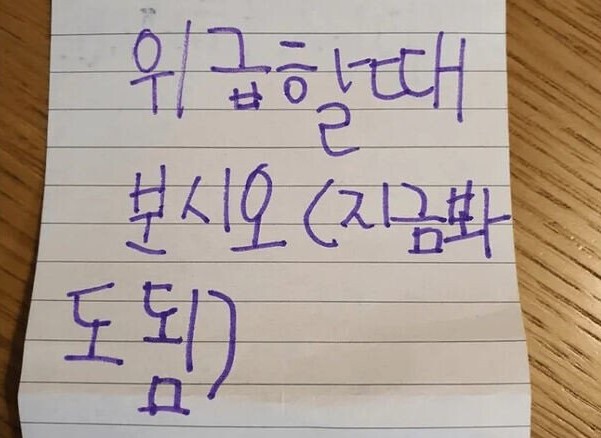 위급할때
분시오 (지금봐
도됨)